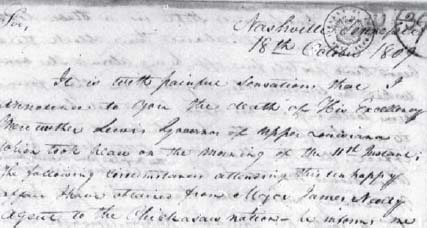 Sir,
Nashville Tennessee
18th October 1809
It is with painful sensations that I
announce to you the death of His Excellency
Meriwether Lewis Governor of upper Louisiana
which took place on the morning of the 11th Instant;
the following circumstances attending this unhappy
affair I have obtained from Major James Neely
Agent to the Chickasaw nation - he informs me